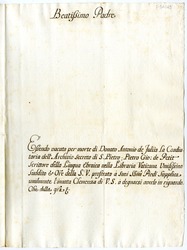 Beatissimo Padre.
Essendo vacata per morte di Donato Antonio de Julijs la Coadiu
toria dell'Archivio Secreto di S. Pietro; Pietro Gio: de Petit
Scrittore della Lingua Ebraica nella Libraria Vaticana Umilissimo
Suddito & Ore della S. V. prostrato a Suoi SSmi Piedi Supplica
umilmente l'innata Clemenza di V. S. a degnarsi averlo in riguardo.
Che della gra &c